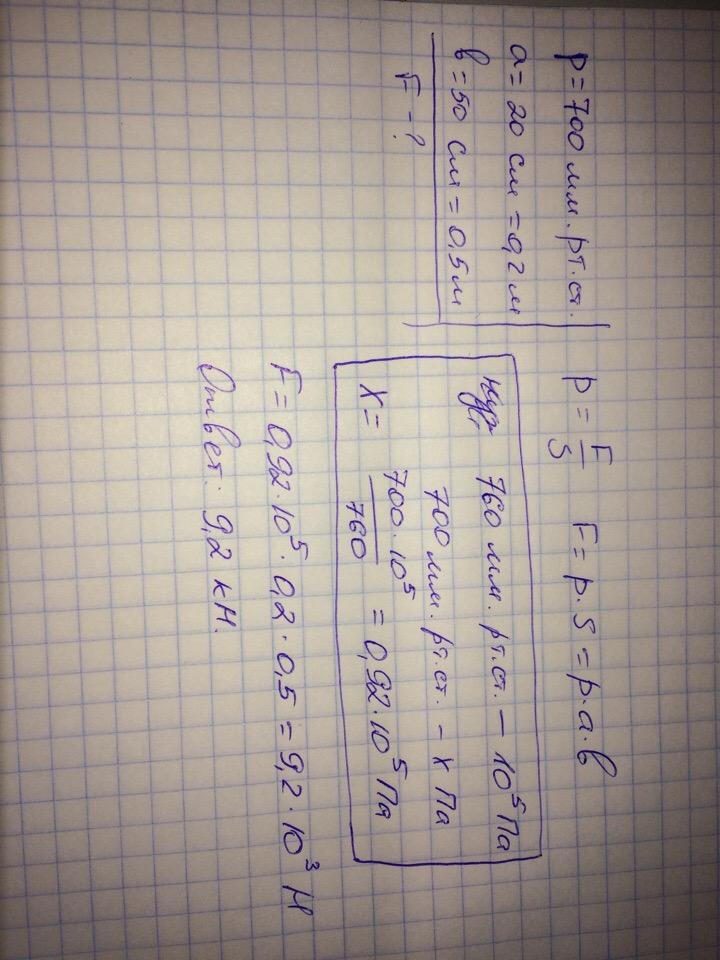 p = 700 мм. рт. ст.
a = 20 см = 0,2 м
b = 50 см = 0,5 м
F - ?
p = F/S F = p · S = p · a · b
760 мм. рт. ст. — 10⁵ Па
700 мм. рт. ст. - x Па
x = 700 · 10⁵/760 = 0,92 · 10⁵ Па
F = 0,92 · 10⁵ · 0,2 · 0,5 = 9,2 · 10³ Н
Ответ: 9,2 кН.